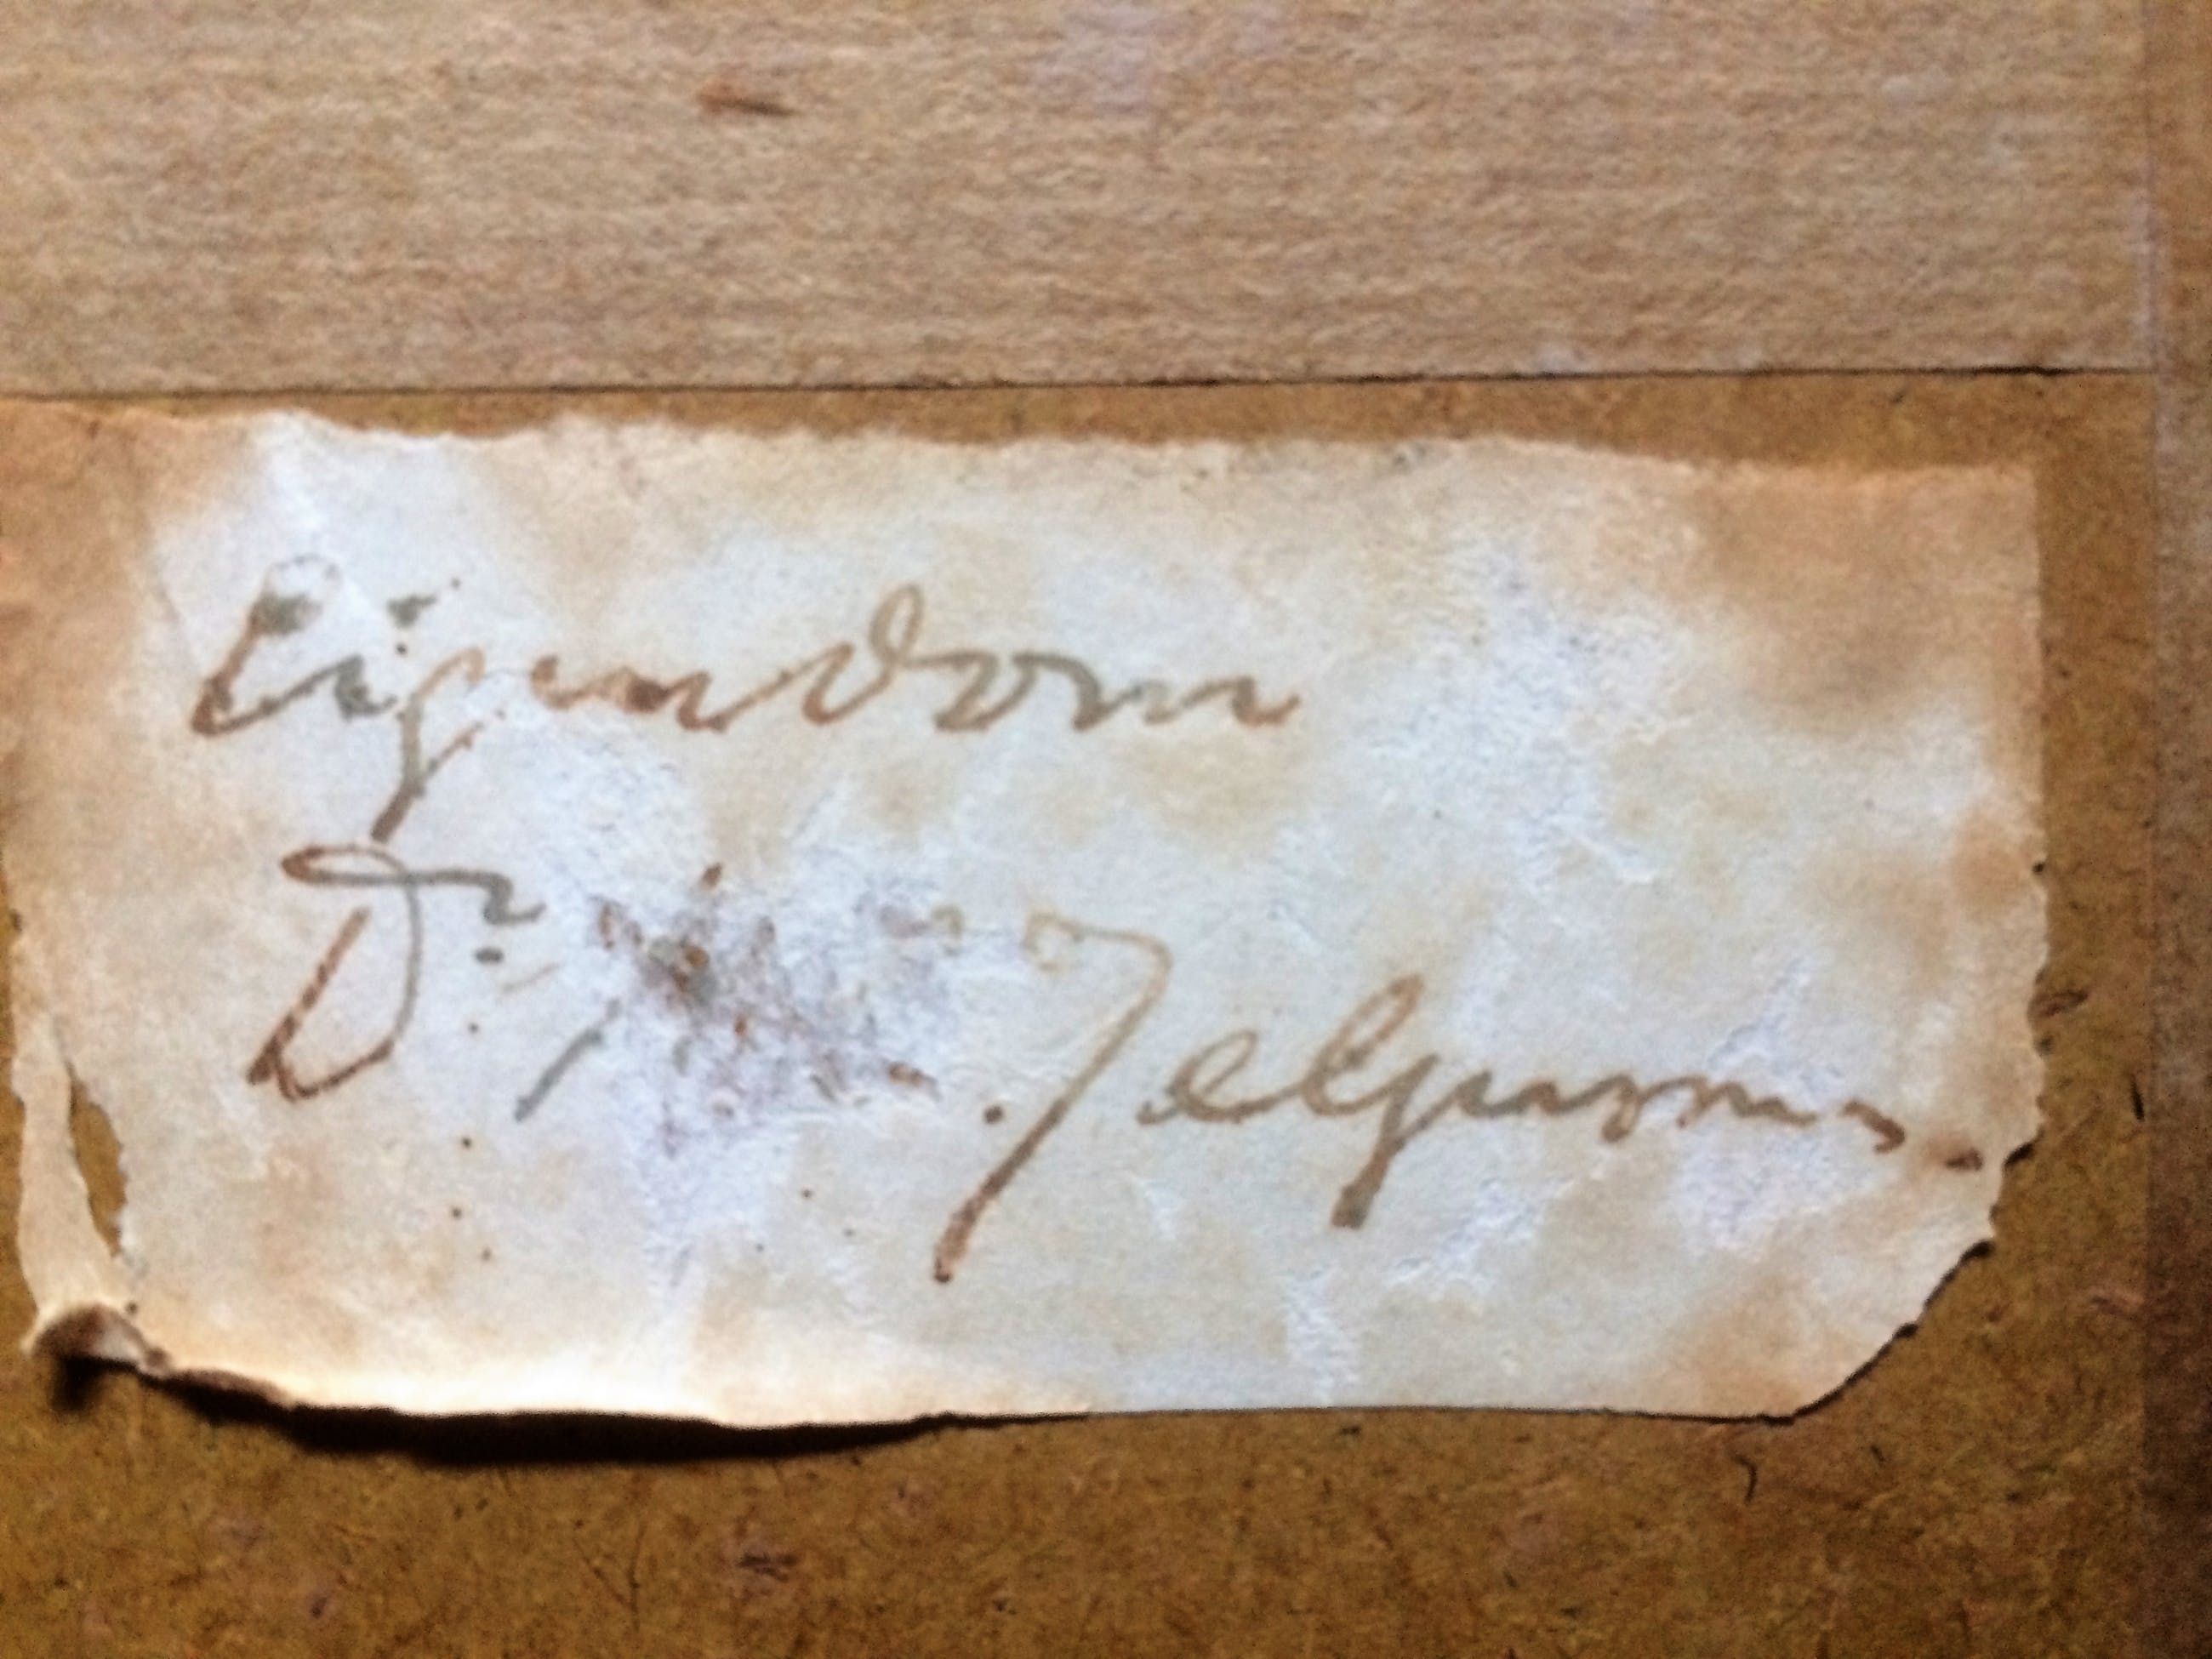 Eigendom
Dr. J. Jelgersma